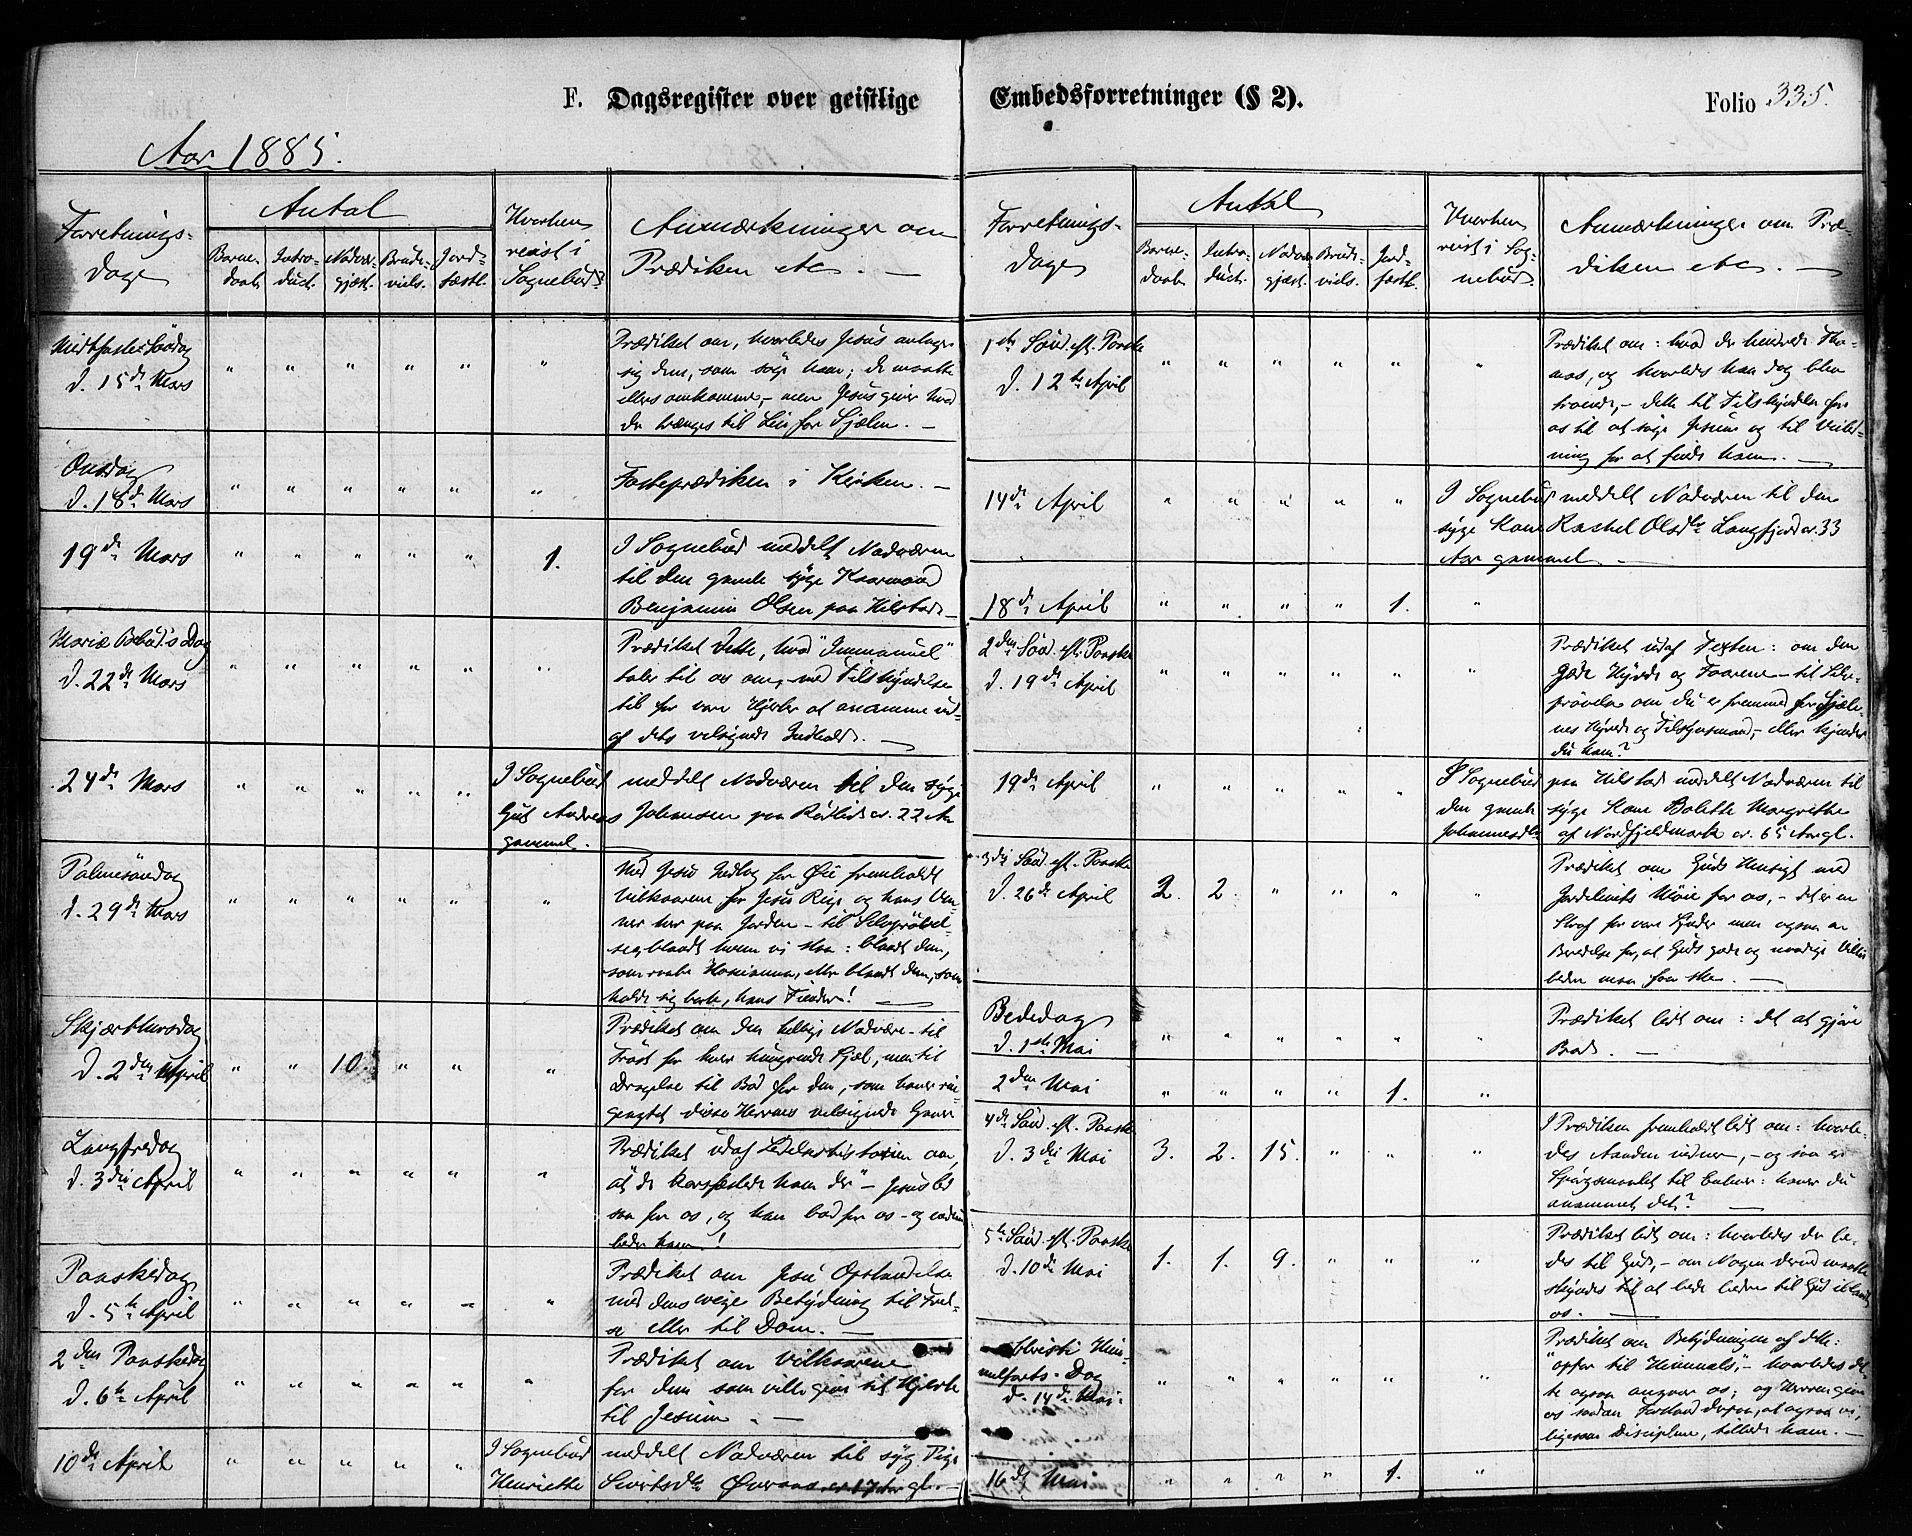 F. Dagsregister over geistlige
Embedsforretninger (§ 2).
Folio 335.
Aar 1885.
Forretnings-
dage
Antal
Barne-
daab.
Intro-
duct.
Nadver-
gjæst.
Brude-
viels.
Jord-
fæstl.
Hvorhen
reist i
Sognebud?
Anmærkninger om
Prædiken etc. —
Midtfaste-Søndag
d. 15de Mars
" " " " " "
Prædiket om, hvorledes Jesus antager
sig dem, som søge ham; de maatte
ellers omkomme, - men Jesus giver hvad
de trænges til Liv for Sjælen. —
Onsdag
d. 18de Mars
" " " " " "
Fasteprædiken i Kirken. —
19de Mars
" " " " " 1.
I Sognebud meddelt Nadveren
til den gamle syge Kaarmand
Benjamin Olsen paa Hilstad. —
Mariæ Bebud.s Dag
d. 22de Mars
" " " " " "
Prædiket dette, hvad "Immanuel"
taler til os om, - med Tilskyndelse
til for vore Hjerter at anamme ud-
af dets velsignede Indhold. —
24de Mars
" " " " "
I Sognebud meddelt Nadveren til den syge
Gut Andreas Johansen paa Rødlid er. 22 Aar
gammel. —
Palmesøndag
d. 29de Mars
" " " " " "
Med Jesu Indtog for Øie fremholdt
Vilkaarene for Jesu Rige og hans Ven-
ner her paa Jorden - til Selvprøvel-
se, blandt hvem vi staa: blandt dem,
som raabe Hosianna, eller blandt dem, som
holde sig borte, hans Fiender! —
Skjærthorsdag
d. 2den April
" " 10. " " "
Prædiket om den hellige Nadvere - til
Trøst for hver hungrende Sjæl, men til
Dragelse til Bod for den, som haver rin-
geagtet disse Herrens velsignede Gaver
Langfredag
d. 3die April
" " " " " "
Prædiket udaf Lidelseshistorien om,
"at de korsfæstede ham der" - Jesus led
saa for os, og han bad for os - og endnu
beder han!
Paaskedag
d. 5te April
" " " " " "
Prædiket om Jesu Opstandelse
med dens evige Betydning til Fred-
en eller til Dom. —
2den Paaskedag
d. 6te April
" " " " " "
Prædiket om Vilkaarene
for dem som ville give sit Hjerte
til Jesum. —
10de April
" " " " "
I Sognebud meddelt Nadveren til syg Pige
Henriette Sivertsdtr Øvraas er 17 Aar gl. —
Forretnings-
dage
Antal
Barne-
daab
Intro-
duct.
Nadver-
gjæst.
Brude-
viels.
Jord-
fæstl.
Hvorhen
reist i Sog-
nebud.
Anmærkninger om Præ-
diken etc. —
1ste Sønd. eft. Paaske
d. 12te April
" " " " " "
Prædiket om: hvad der hindrede Tho-
mas, og hvorledes han dog blev
troende, - dette til Tilskyndelse for
os til at søge Jesum og til Veiled-
ning for at finde ham. —
14de April
" " " " "
I Sognebud meddelt Nadveren til den
syge Kone Rachel Olsdtr Langfjord er. 33
Aar gammel.
18de April
" " " " 1. "
2den Sønd. eft. Paaske
d. 19de April
" " " " " "
Prædiket udaf Texten: om den
gode Hyrde og Faarene - til Selv-
prøvelse om du er fremmed for Sjæle-
nes Hyrde og Tilsynsmand, - eller kjender
du ham?
19de April
" " " " "
I Sognebud paa Hilstad meddelt Nadveren til
den gamle syge Kone Bolette Margrethe
Johannesdtr af Nordfjeldmark er. 65 Aar gl.
3die Sønd. eft. Paaske
d. 26de April
2. 2. " " " "
Prædiket om Guds Hensigt med
Jordelivets Møie for os, - det er en
Straf for vore Synder men ogsaa en
Beredelse for, at Guds gode og naadige Villie
bedre maa faa ske. —
Bededag
d. 1ste Mai
" " " " " "
Prædiket lidt om: det at gjøre
Bod. —
2den Mai
" " " " 1. "
4de Sønd. eft. Paaske
d. 3die Mai
3. 2. 15. " " "
I Prædiken fremholdt lidt om: hvorle-
des Aanden vidner, - og saa er
Spørgsmaalet til Enhver: haver du
anammet det? —
5te Sønd. eft. Paaske
d. 10de Mai
1. 1. 9. " " "
Prædiket lidt om: hvorledes der be-
des til Gud, - om Nogen derved maatte
skyndes til at bede bedre til Gud iblandt
os. —
Christi Him-
melfarts-Dag
d. 14de Mai.
" " " " " "
Prædiket om Betydningen af dette:
"opfor til Himmels", - hvorledes det-
te ogsaa angaar os; og Herren give
os saadan Forstand derpaa, at ogsaa vi,
ligesom Disciplene, tilbede ham. —
16de Mai
" " " " 1. "